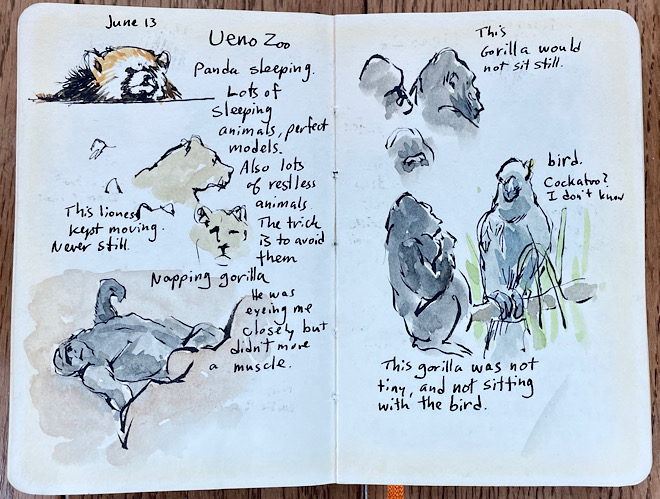 June 13
Ueno Zoo
Panda sleeping.
Lots of
sleeping
animals, perfect
models.
Also lots
of restless
animals.
The trick
is to avoid
them
This lioness
kept moving.
Never still.
Napping gorilla
He was
eyeing me
closely but
didn't move
a muscle.
This
Gorilla would
not sit still.
bird.
Cockatoo?
I don't know
This gorilla was not
tiny, and not sitting
with the bird.